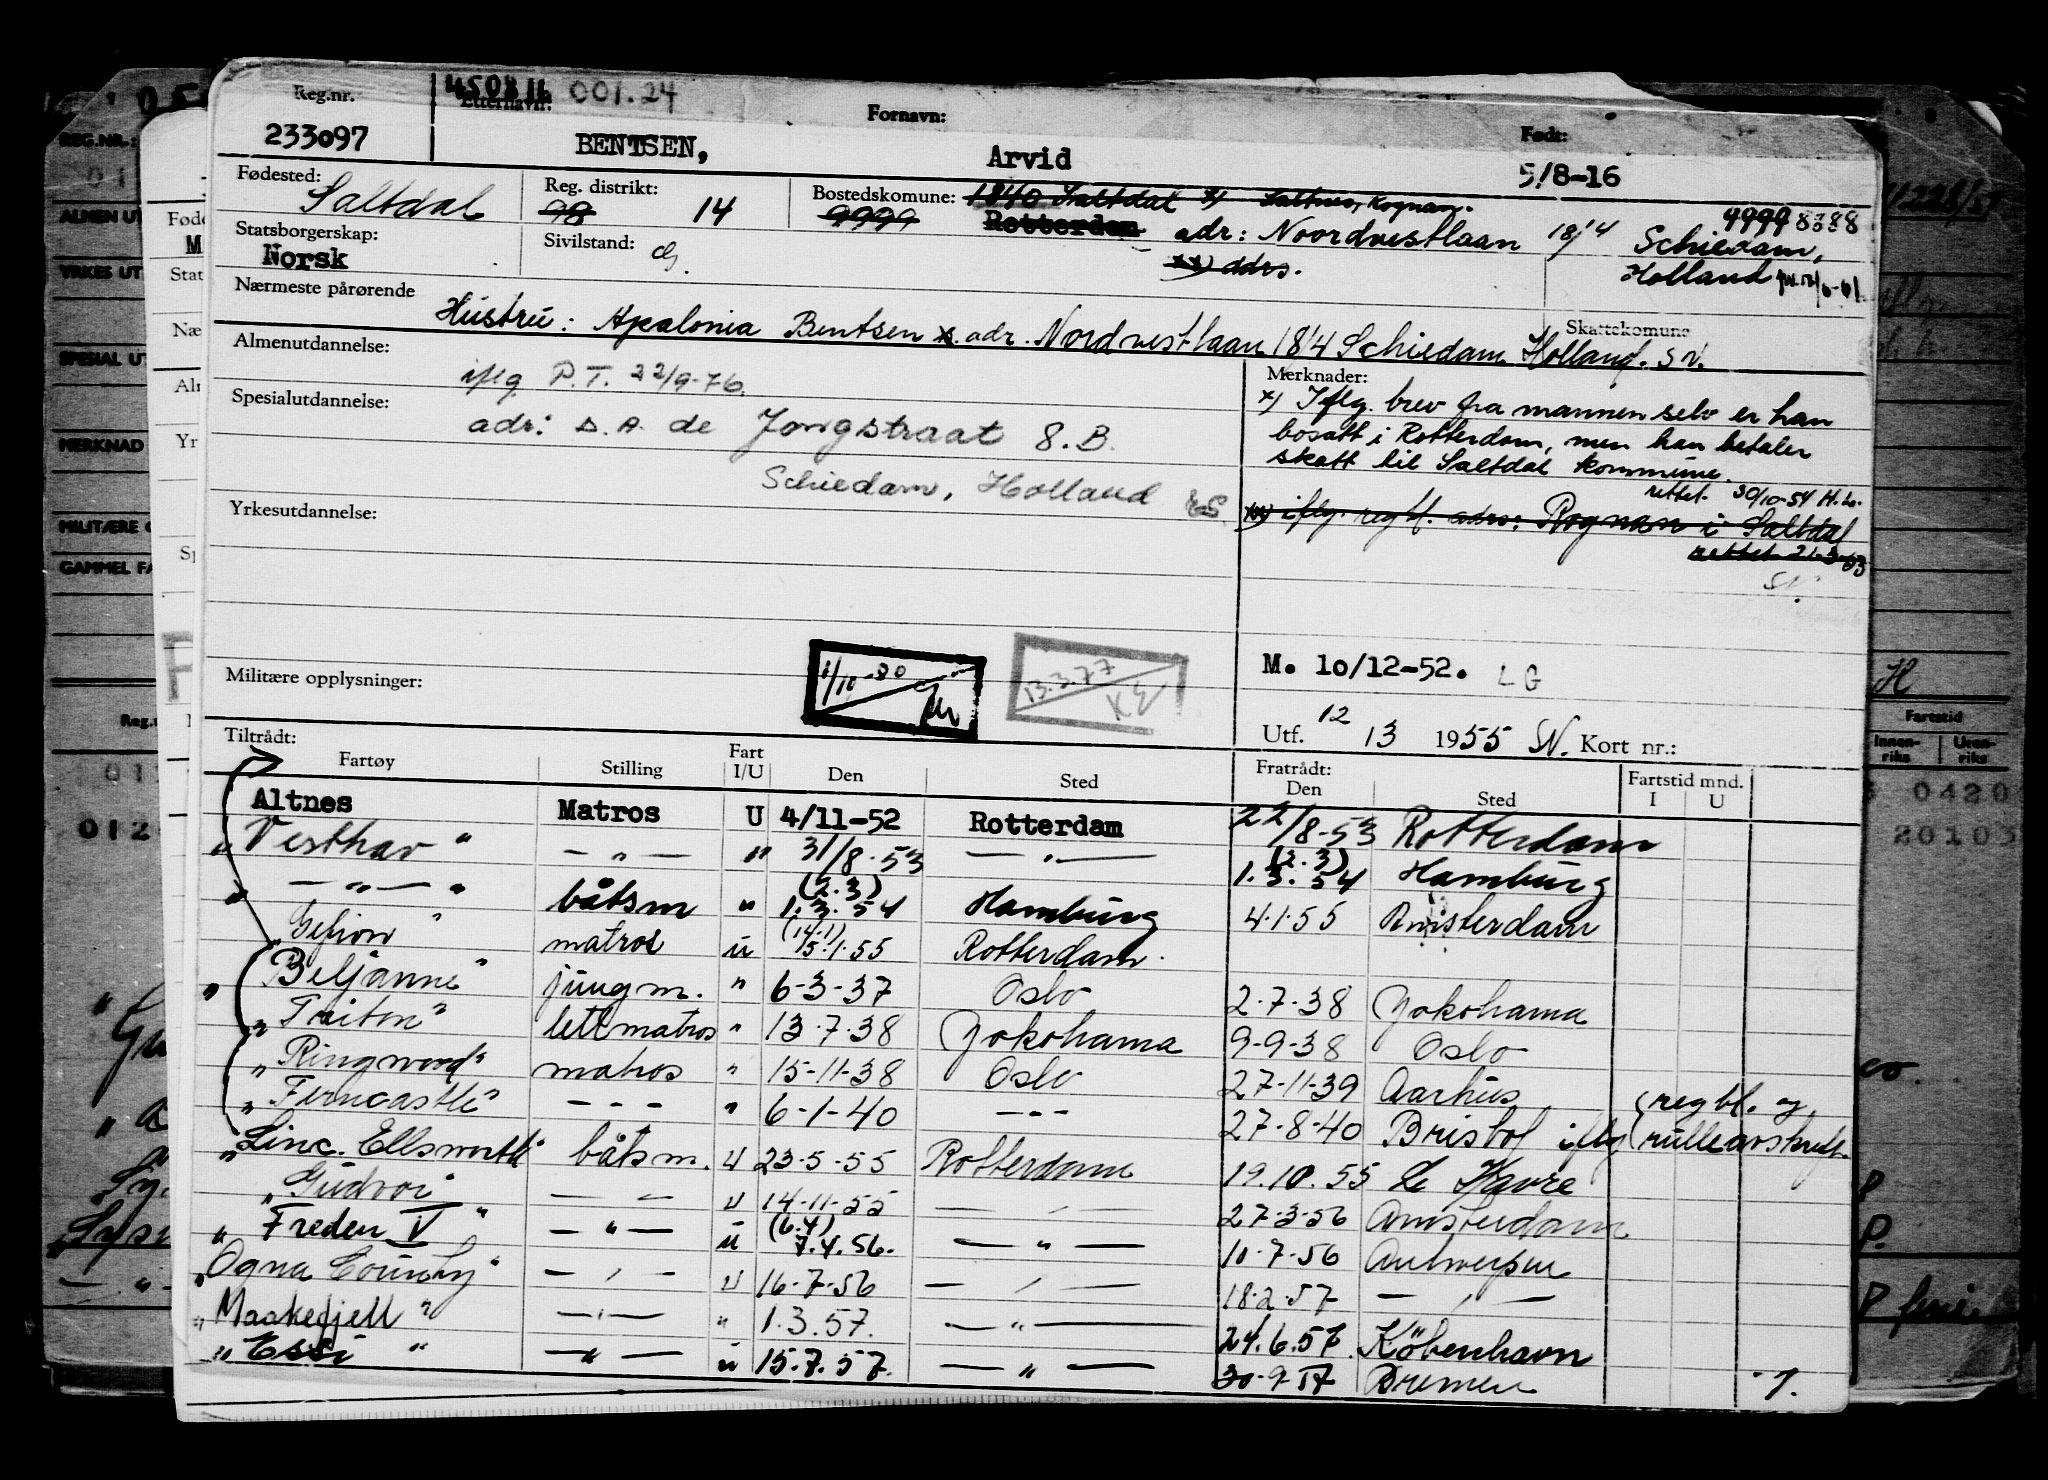 Reg.nr. 450816 001.24 Etternavn: Fornavn: Født:
233097 BENTSEN, Arvid 5/8-16
Fødested: Saltdal Reg. distrikt: 98 14 Bostedskomune: 9999 1840 Saltdal x) Saltnes, Rognan.
Rotterdam adr: Noordvestlaan 18/4 Schiedam, 9999 8388
Statsborgerskap: Norsk Sivilstand: G. xx) adrs. Holland
Nærmeste pårørende
Hustru: Apalonia Bentsen x. adr. Nordvestlaan 18/4 Schiedam Holland. SN.
Skattekomune
Almenutdannelse:
iflg P.T. 22/9-76.
Spesialutdannelse:
adr: D.A. de Jongstraat 8.B.
Schiedam, Holland
Yrkesutdannelse:
Merknader:
x) Iflg. brev fra mannen selv er han
bosatt i Rotterdam, men han betaler
skatt til Saltdal kommune.
rettet 30/10-54 H.L.
xx) iflg. regbl. adrs: Rognan i Saltdal
rettet 21-3-63
SN.
Militære opplysninger:
1/10-80
13.3.77 KE
M. 10/12-52. LG
Utf. 12 13 1955 SN. Kort nr.:
Tiltrådt: Fratrådt: Fartstid mnd.
Fartøy Stilling Fart I/U Den Sted Den Sted I U
Altnes Matros U 4/11-52 Rotterdam 22/8-53 Rotterdam
"Vesthav" — " — " 31/8-53 — " — (2.3) 1.3.54 Hamburg
" — " — " båtsm " (2.3) 1.3.54 Hamburg 4.1.55 Amsterdam
"Gefion" matros u (14.1) 15.1.55 Rotterdam.
"Beljanne" jungm. " 6-3-37 Oslo 2.7.38 Yokohama
"Triton" lettmatros " 13.7.38 Yokohama 9-9-38 Oslo
"Ringwood" matros " 15-11-38 Oslo 27-11-39 Aarhus
"Ferncastle" - - - " 6-1-40 - - - 27-8-40 Bristol iflg (regbl. og rulleavskrift.
"Linc. Ellsworth" båtsm. U 23-5-55 Rotterdam 19.10.55 Le Havre
"Gudvor" — " — U 14-11-55 — " — 27-3-56 Amsterdam
"Freden V" — " — u (6.4) 7.4.56. — " — 10-7-56 Antwerpen
"Ogna County" — " — U 16-7-56 — " — 18.2.57 — " —
"Maakefjell" — " — " 1.3.57. — " — 24.6.57. København
"Essi " — " — u 15.7.57. — " — 30-9-57 Bremen
REG.NR.:
YRKES UT
SPESIAL UT
MERKNAD
GAMMEL FA
Fartstid
Innen-riks Uten-riks
0420